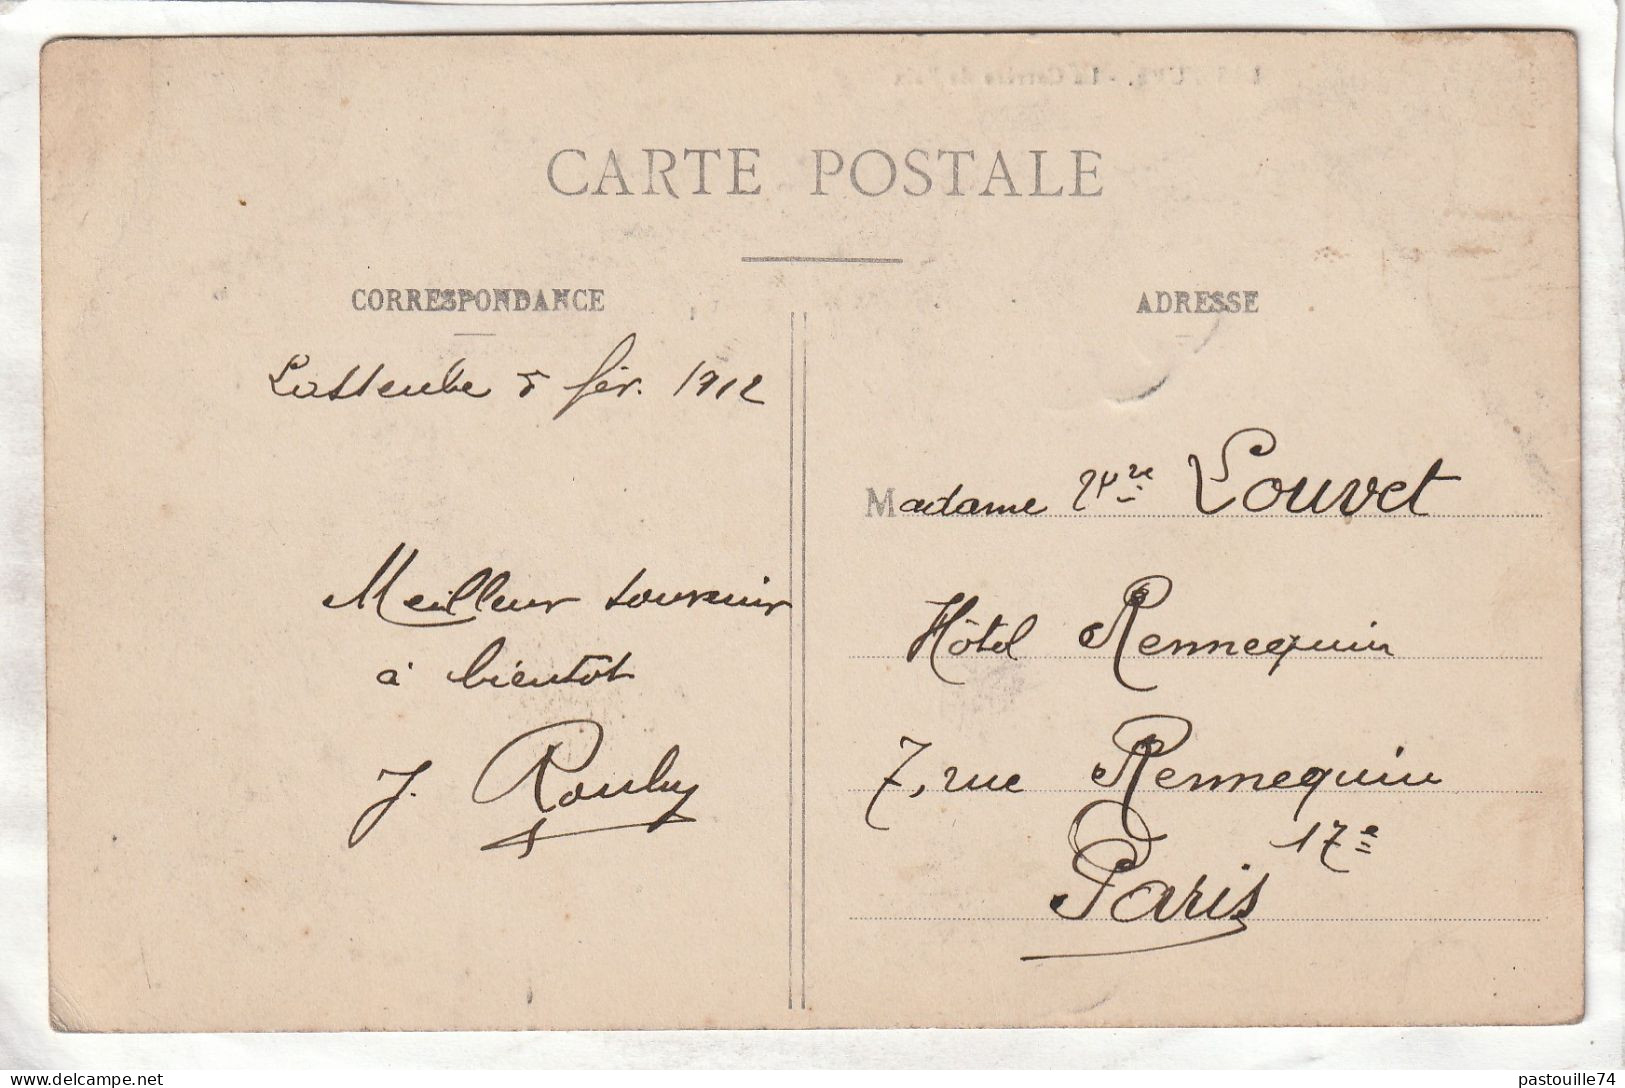 CARTE POSTALE
CORRESPONDANCE
ADRESSE
Lasseube 5 fév. 1912
Madame Vve Louvet
Meilleur souvenir
Hôtel Rennequin
à bientot
7, rue Rennequin
J. Rouby
17e
Paris
www.delcampe.net
pastouille74